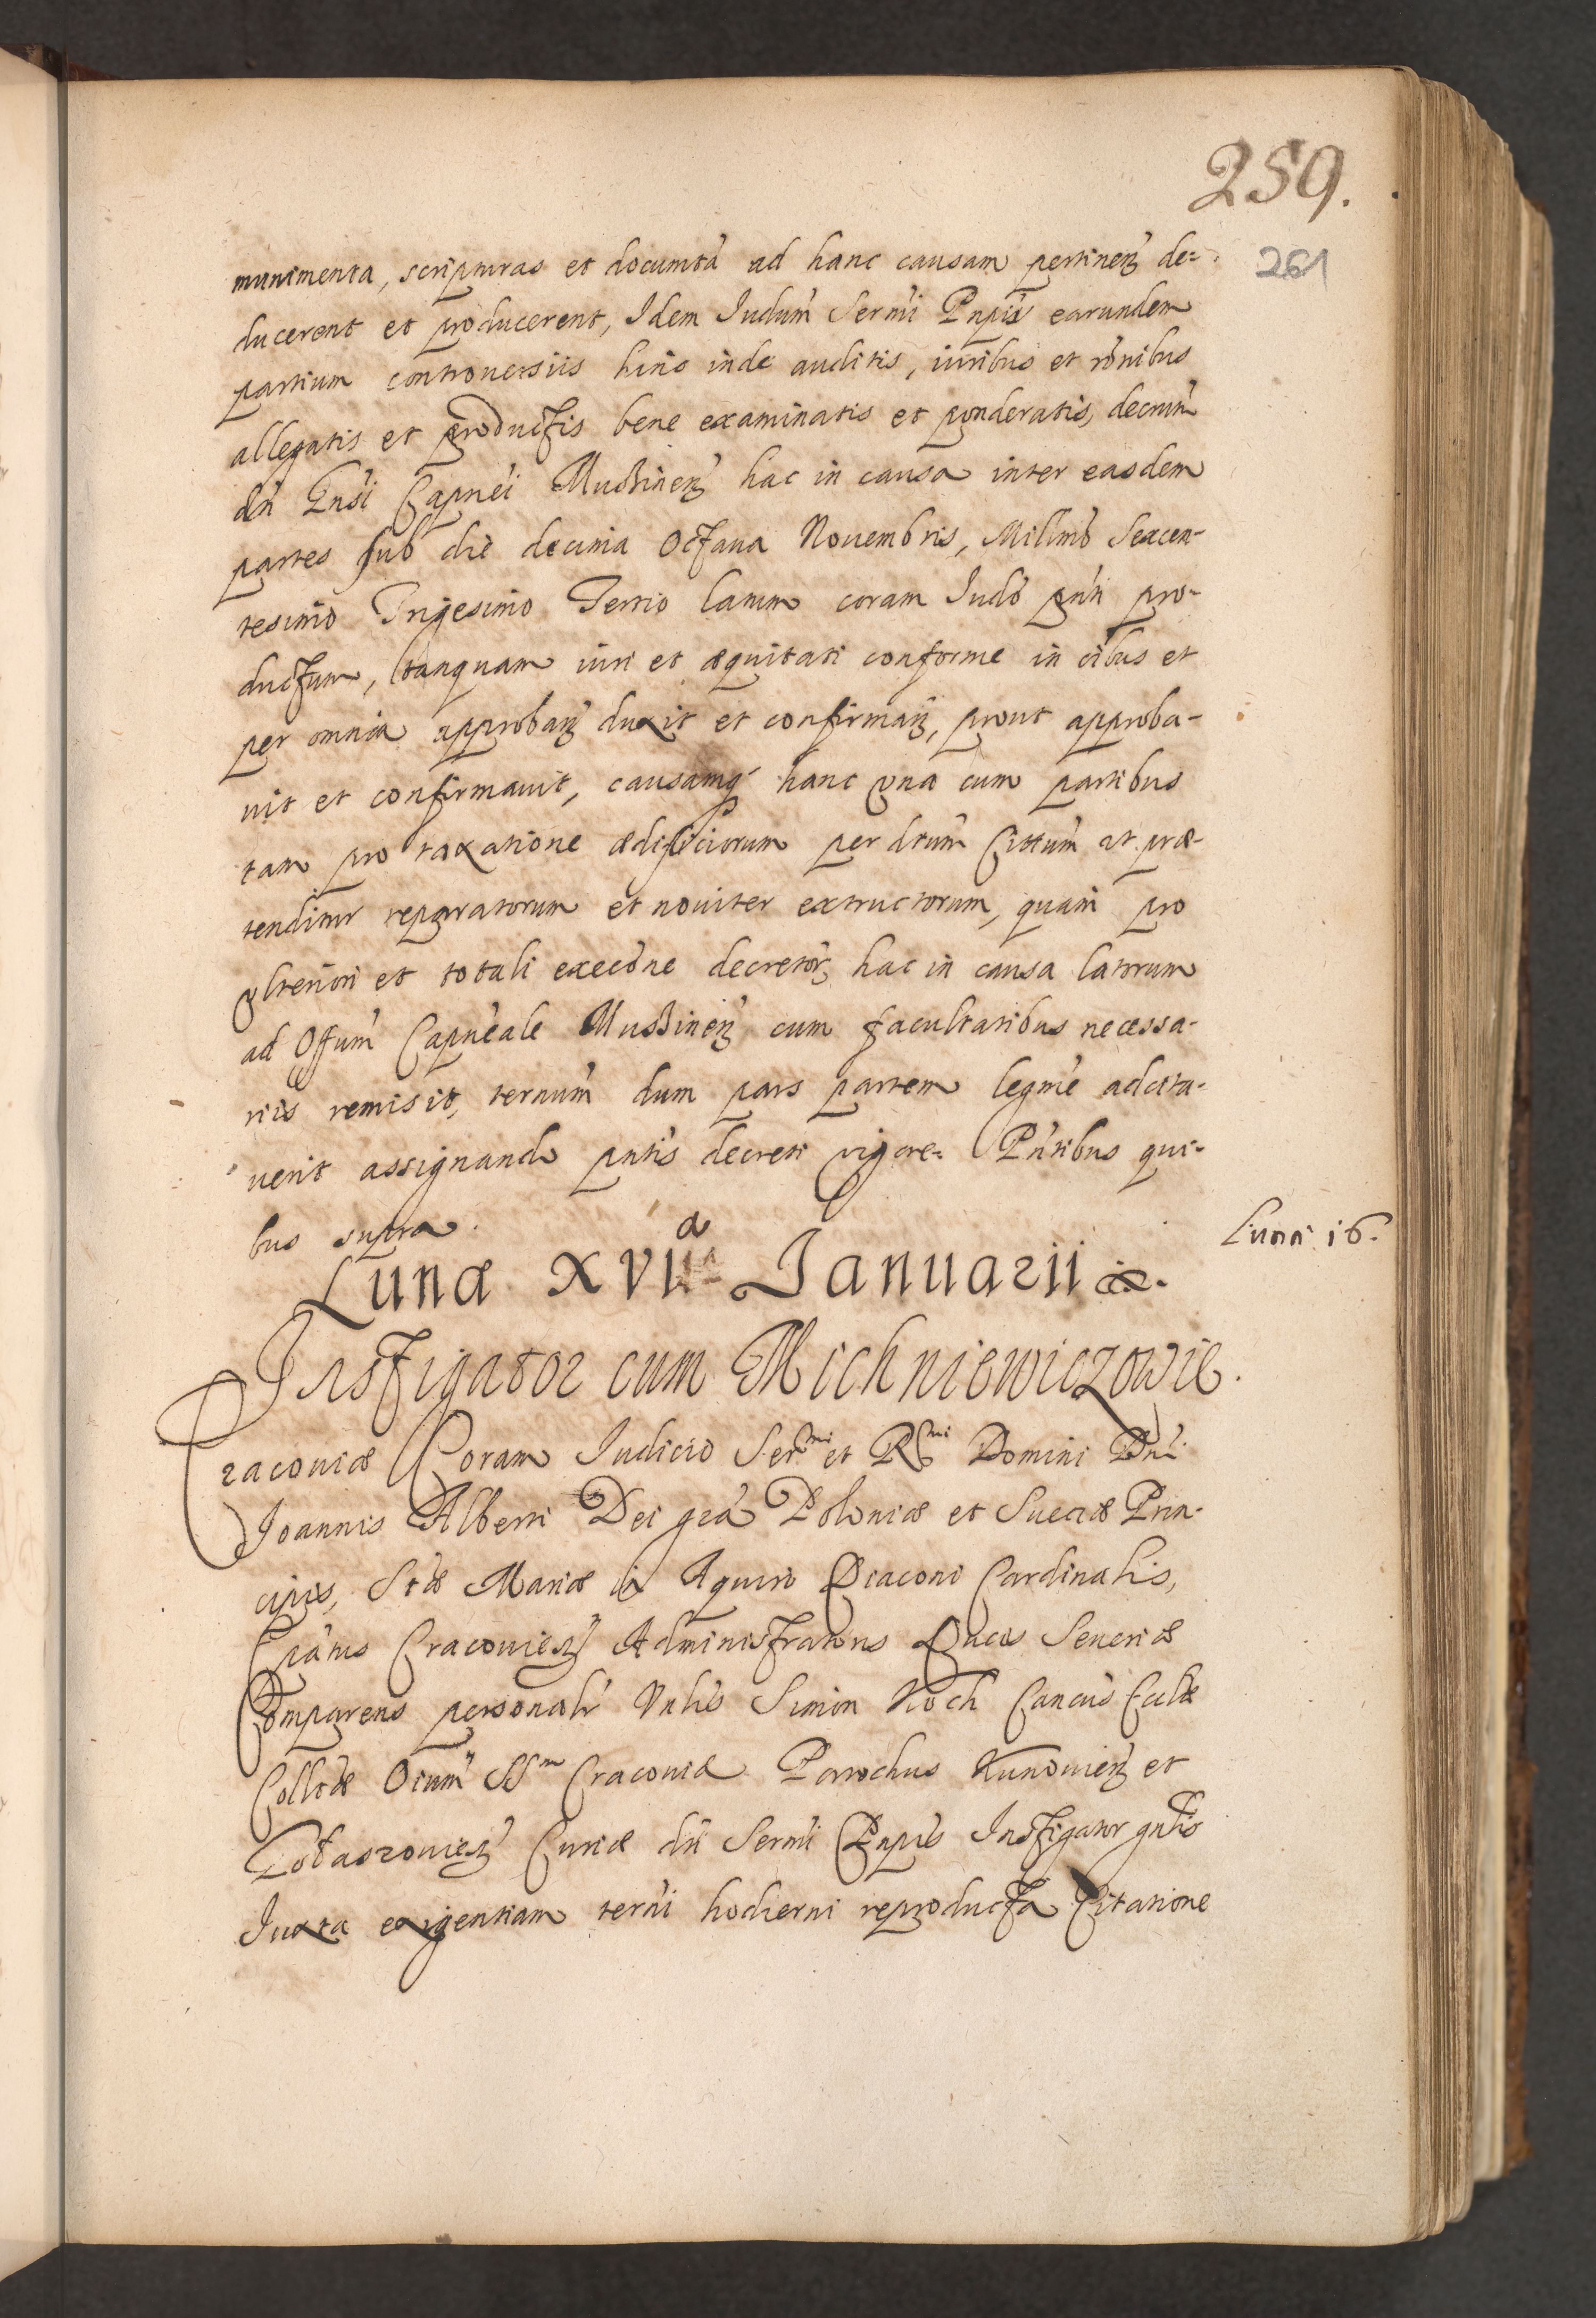 259.
261
munimenta, scripturas et documta ad hanc causam pertinen de=
ducerent et producerent, Idem Iudum Sermi Pnpis earundem
partium controversiis hinc inde auditis, iuribus et ronibus
allegatis et productis bene examinatis et ponderatis, decrum
dn Capnei Mussinen hac in causa inter easdem
partes sub die decima Octava Novembris, Millmo Sexcen-
tesimo Trigesimo Tertio latum coram Iudo pnti pro-
ductum, tanquam iuri et æquitati conforme in oibus et
per omnia approban duxit et confirman, prout approba-
vit et confirmavit, causamq hanc vna cum partibus
tam pro taxatione ædificiorum per dtum Cittum ut præ-
tenditur reparatorum et noviter extructorum, quam pro
vlteriori et totali execōne decretor hac in causa latorum
ad Offum Capneale Mussinen cum facultatibus necessa-
riis remisit, ternum dum pars partem legme adcita-
verit assignando pntis decreti vigore. Pntibus qui-
bus supra.
Lunæ XVIa Ianuarii &.
Lunæ 16.
Instigator cum Michniewiczowie.
Cracoviæ Coram Iudicio Sermi et Rmi Domini Dni
Ioannis Alberti Dei gra Poloniæ et Sueciæ Prin-
cipis, Stæ Mariæ in Aquiro Diaconi Cardinalis,
Epatus Cracovien Administratoris Ducis Severiæ
Comparens personalr Vnlis Simon Koch Cancus Ecclæ
Colltæ Oium SSm Cracoviæ Parochus Kunovien et
Curiæ dti Sermi Pnpis Instigator gnlis
Iuxta exigentiam terni hodierni reproducta Citatione